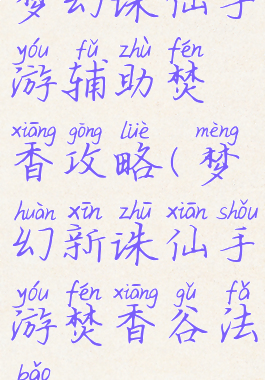 梦幻诛仙手
yóu fǔ zhù fén
游辅助焚
xiāng gōng lüè mèng
香攻略(梦
huàn xīn zhū xiān shǒu
幻新诛仙手
yóu fén xiāng gǔ fǎ
游焚香谷法
bǎo